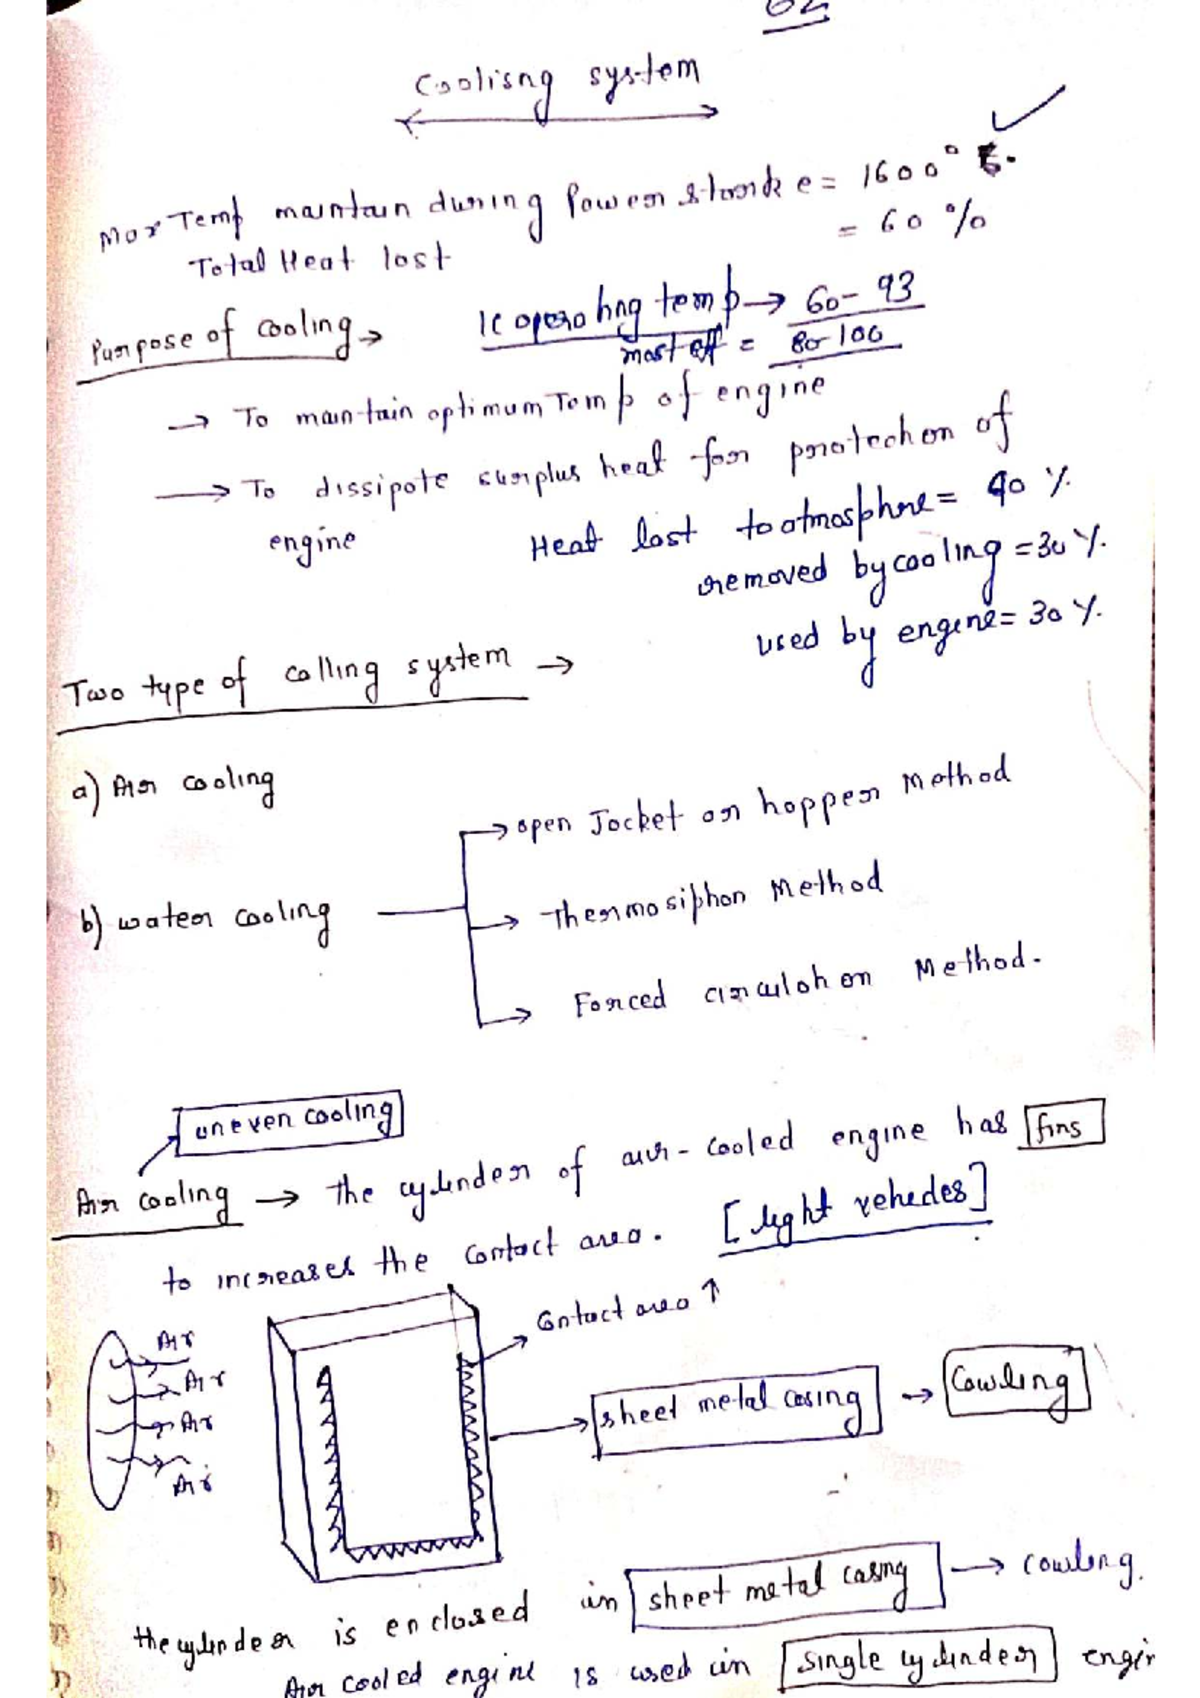 62
Coolisng system
Max Temp maintain during Power stroke = 1600°
Total Heat lost = 60%
Purpose of cooling →
IC operating temp → 60-93
most eff = 80-100
→ To maintain optimum Temp of engine
→ To dissipate surplus heat for protection of
engine
Heat lost to atmosphre = 40 %.
removed by cooling = 30 %.
used by engine = 30 %.
Two type of colling system →
a) Air cooling
b) water cooling
→ open Jacket or hopper Method
→ Thermosiphon Method
→ Forced circulation Method.
uneven cooling
Air cooling → The cylinder of air-cooled engine has fins
to increases the contact area. [light vehicles]
Air
Air
Air
Air
→ Contact area ↑
→ sheet metal casing → Cowling
The cylinder is enclosed in sheet metal casing → cowling.
Air cooled engine is used in single cylinder engin